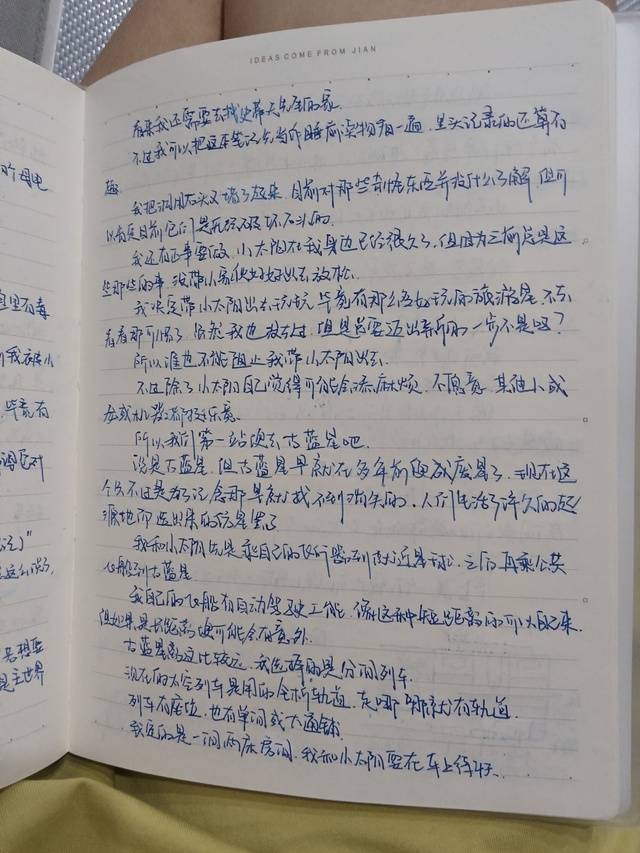 IDEAS COME FROM JIAN
看来我还需要去找史蒂夫先生的家
不过我可以把这本笔记先当作睡前读物看一遍,里头记录的还算有
趣
我把洞用石头又堵了起来,目前对那些奇怪东西并没什么了解,但可
以肯定目前它们是无法破坏石头的.
我还有正事要做,小太阳在我身边已经很久了,但因为之前总是这
些那些的事,没带小家伙好好出去放松.
我决定带小太阳出去玩玩,毕竟有那么多好玩的旅游星,不去
看看那可惜了,虽然我也放不过,但是总要迈出新的一步不是吗?
所以谁也不能阻止我带小太阳出去.
不过除了小太阳自己觉得可能会添麻烦,不愿意,其他小
机器都挺乐意.
所以我们第一站便去古蓝星吧.
说是古蓝星,但古蓝星早就在多年前便成废墟了,现在这
个只不过是为了纪念那早就找不到消失的,人们生活了许久的起
源地而造出来的仿星罢了
我和小太阳先是乘自己的飞行器到附近星球,之后再乘公共
飞船到古蓝星
我自己的飞船有自动驾驶功能,像这种短距离的可以自己来,
但如果是长距离便可能会有意外.
古蓝星离这比较远,我选择的是分间列车.
现在的太空列车是用的全新轨道,走哪哪就有轨道
列车有座位,也有单间或大通铺
我定的是一间两床房间,我和小太阳要在车上待4天.
出的母电
这里有毒
毕竟有
这么说了,
是主世界